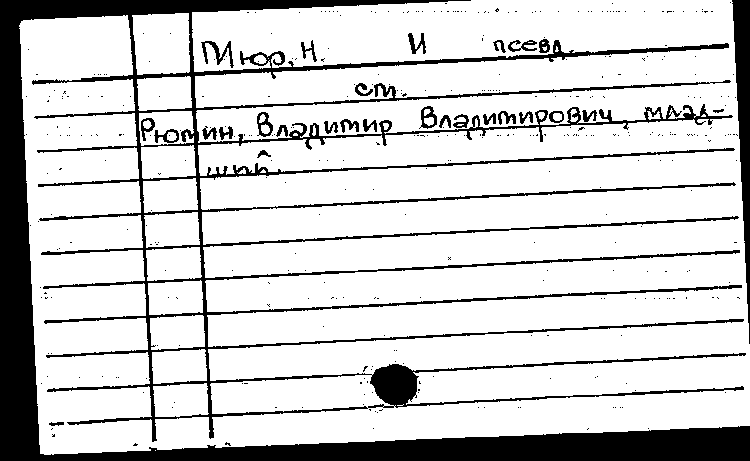 Мюр, Н. И псевд.
ст.
Рюмин, Владимир Владимирович, млад-
ший.